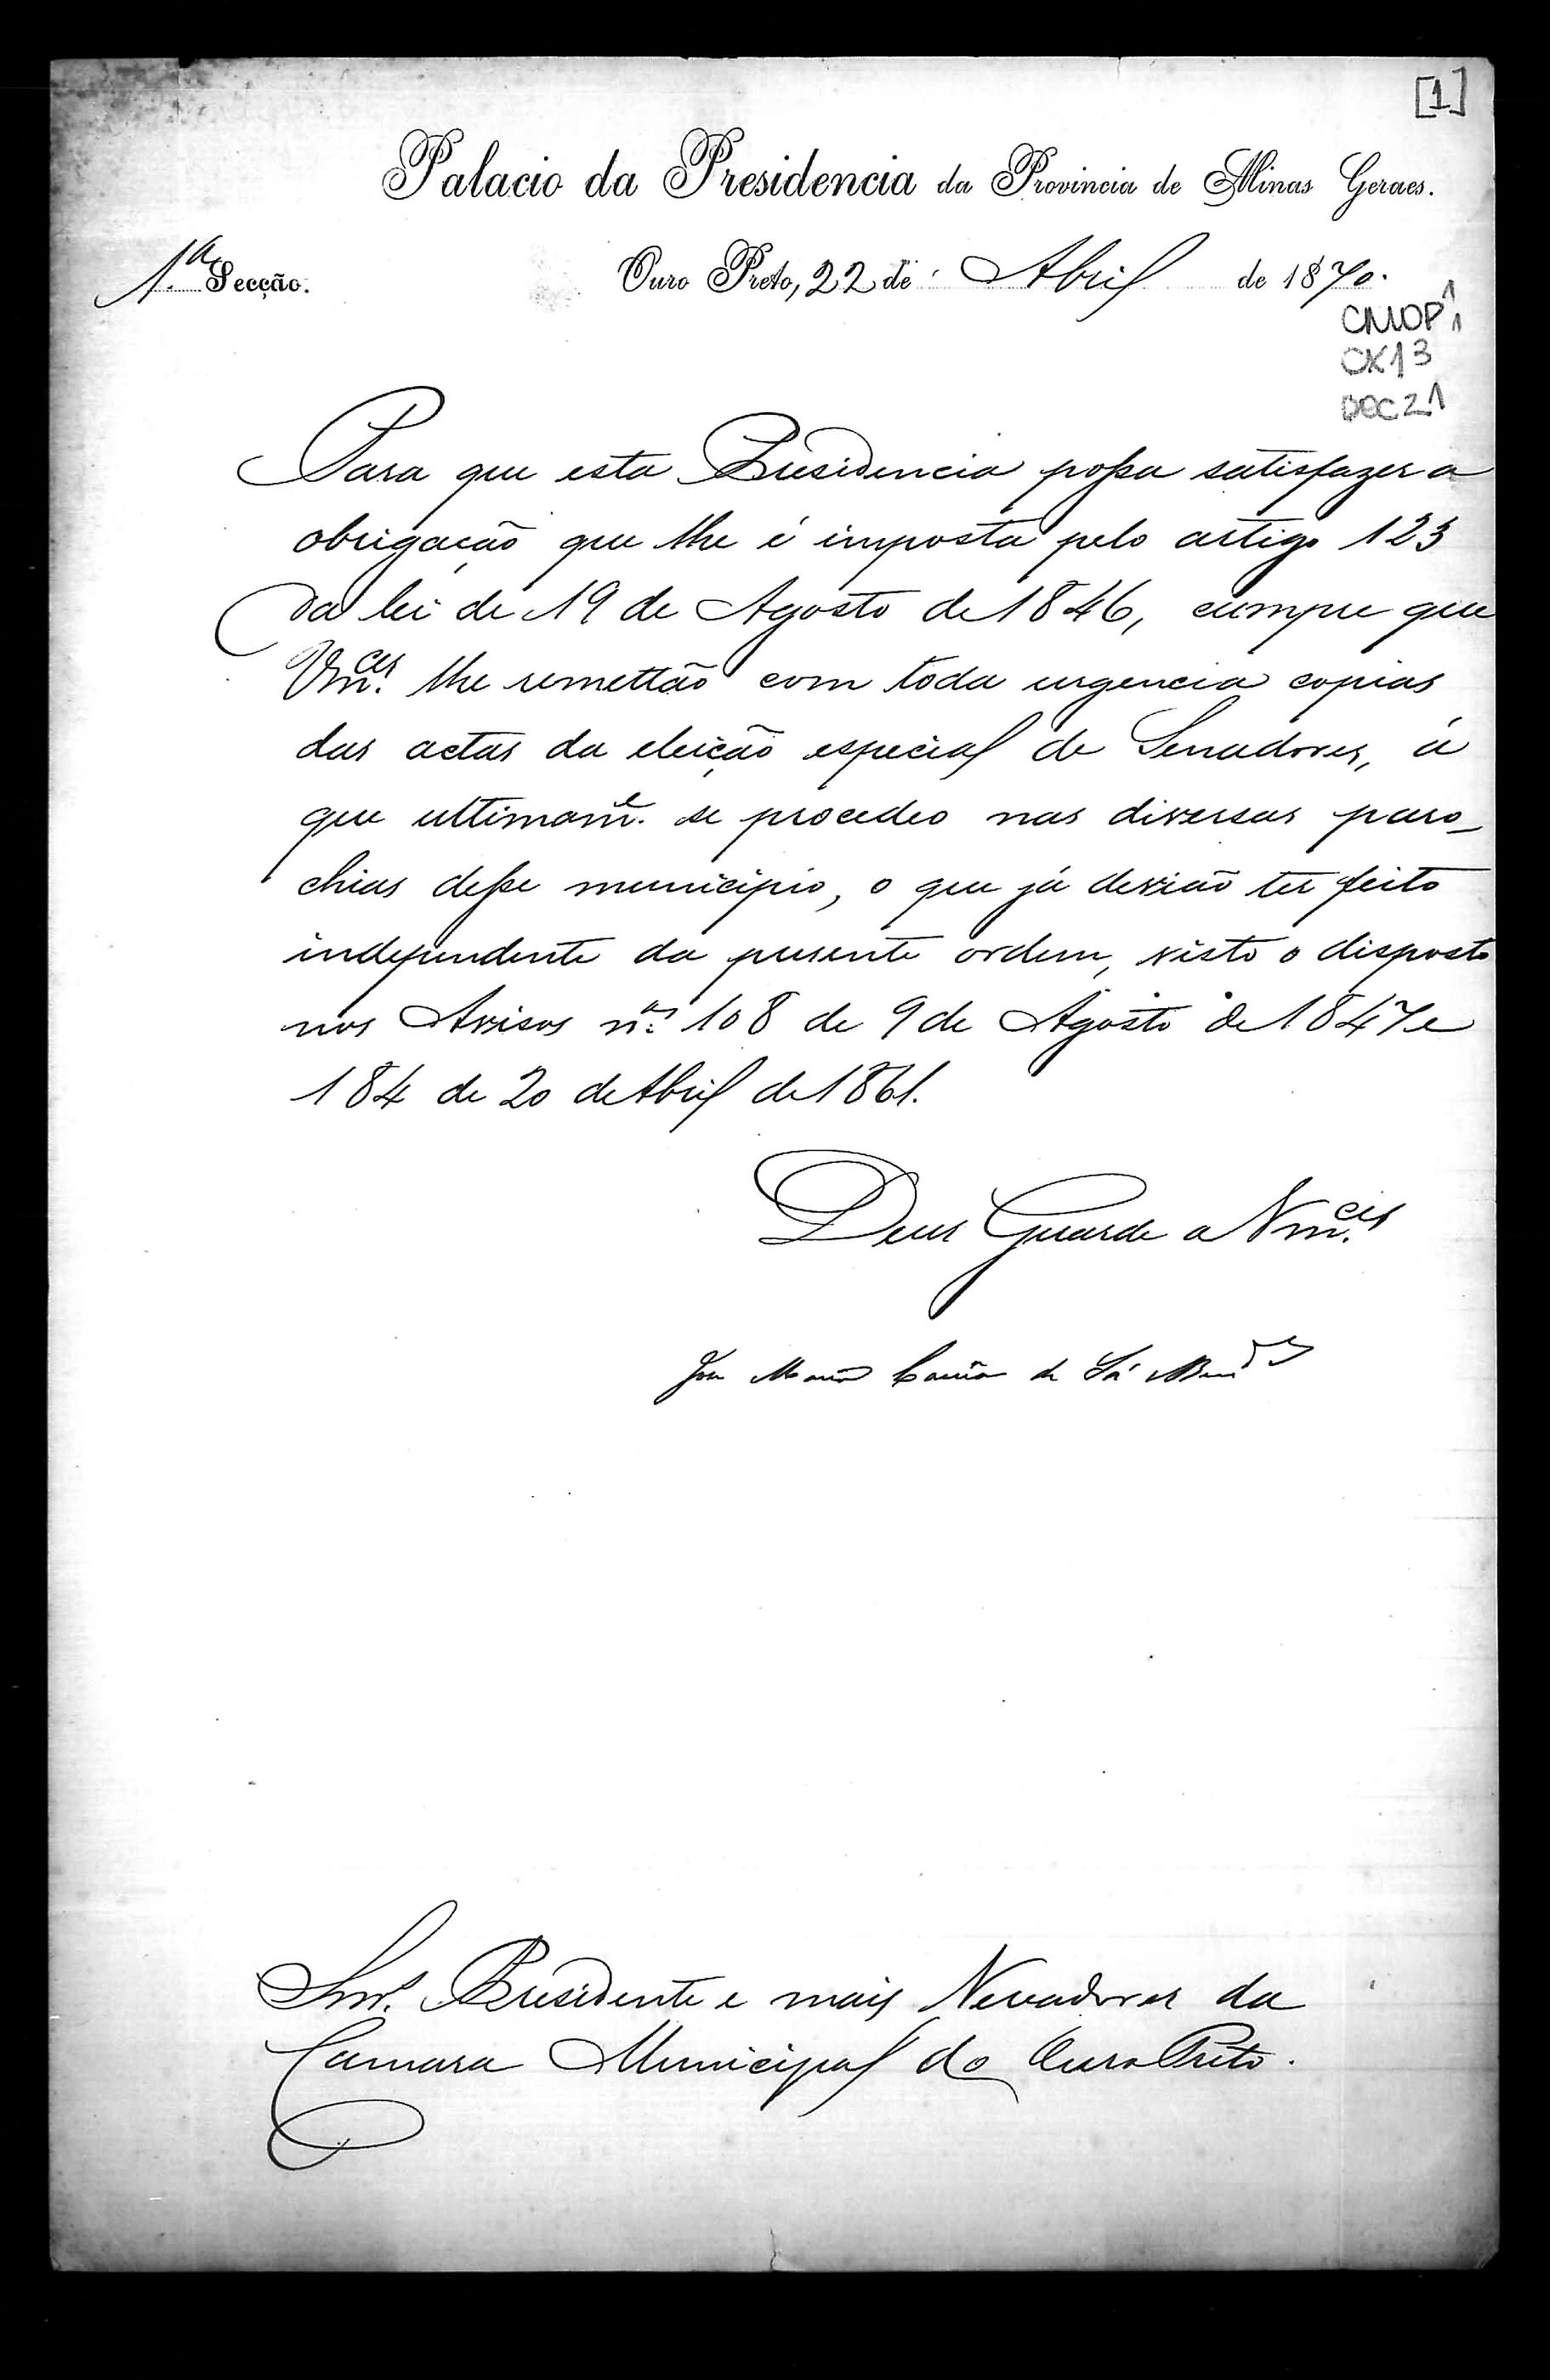 [1]
Palacio da Presidencia da Provincia de Minas Geraes.
1.ª Secção.
Ouro Preto, 22 de Abril de 1870.
CMOP 1
1
CX13
DOC21
Para que esta Presidencia possa satisfazer a
obrigação que lhe é imposta pelo artigo 123
da lei de 19 de Agosto de 1846, cumpre que
Vm.ces lhe remettão com toda urgencia copias
das actas da eleição especial de Senadores, á
que ultimam.e se procedeo nas diversas paro_
chias desse municipio, o que já devião ter feito
independente da presente ordem, visto o disposto
nos Avisos n.os 108 de 9 de Agosto de 1847 e
184 de 20 de Abril de 1861.
Deus Guarde a Vm.ces
de Sá
Snr. Presidente e mais Vereadores da
Camara Municipal do Ouro Preto.